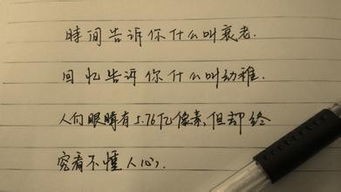 時间告诉你什么叫衰老.
回忆告诉你什么叫幼稚.
人们眼睛有5.76亿像素,但却终
究看不懂人心,